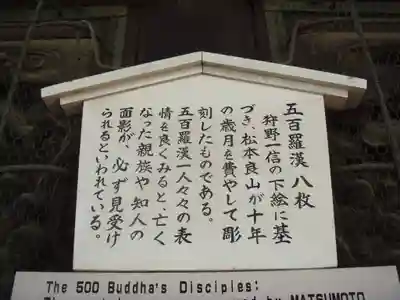 五百羅漢 八枚
狩野一信の下絵に基
づき、松本良山が十年
の歳月を費やして彫
刻したものである。
五百羅漢一人々々の表
情を良くみると、亡く
なった親族や知人の
面影が、必ず見受け
られるといわれている。
The 500 Buddha's Disciples:
by MATSUMOTO